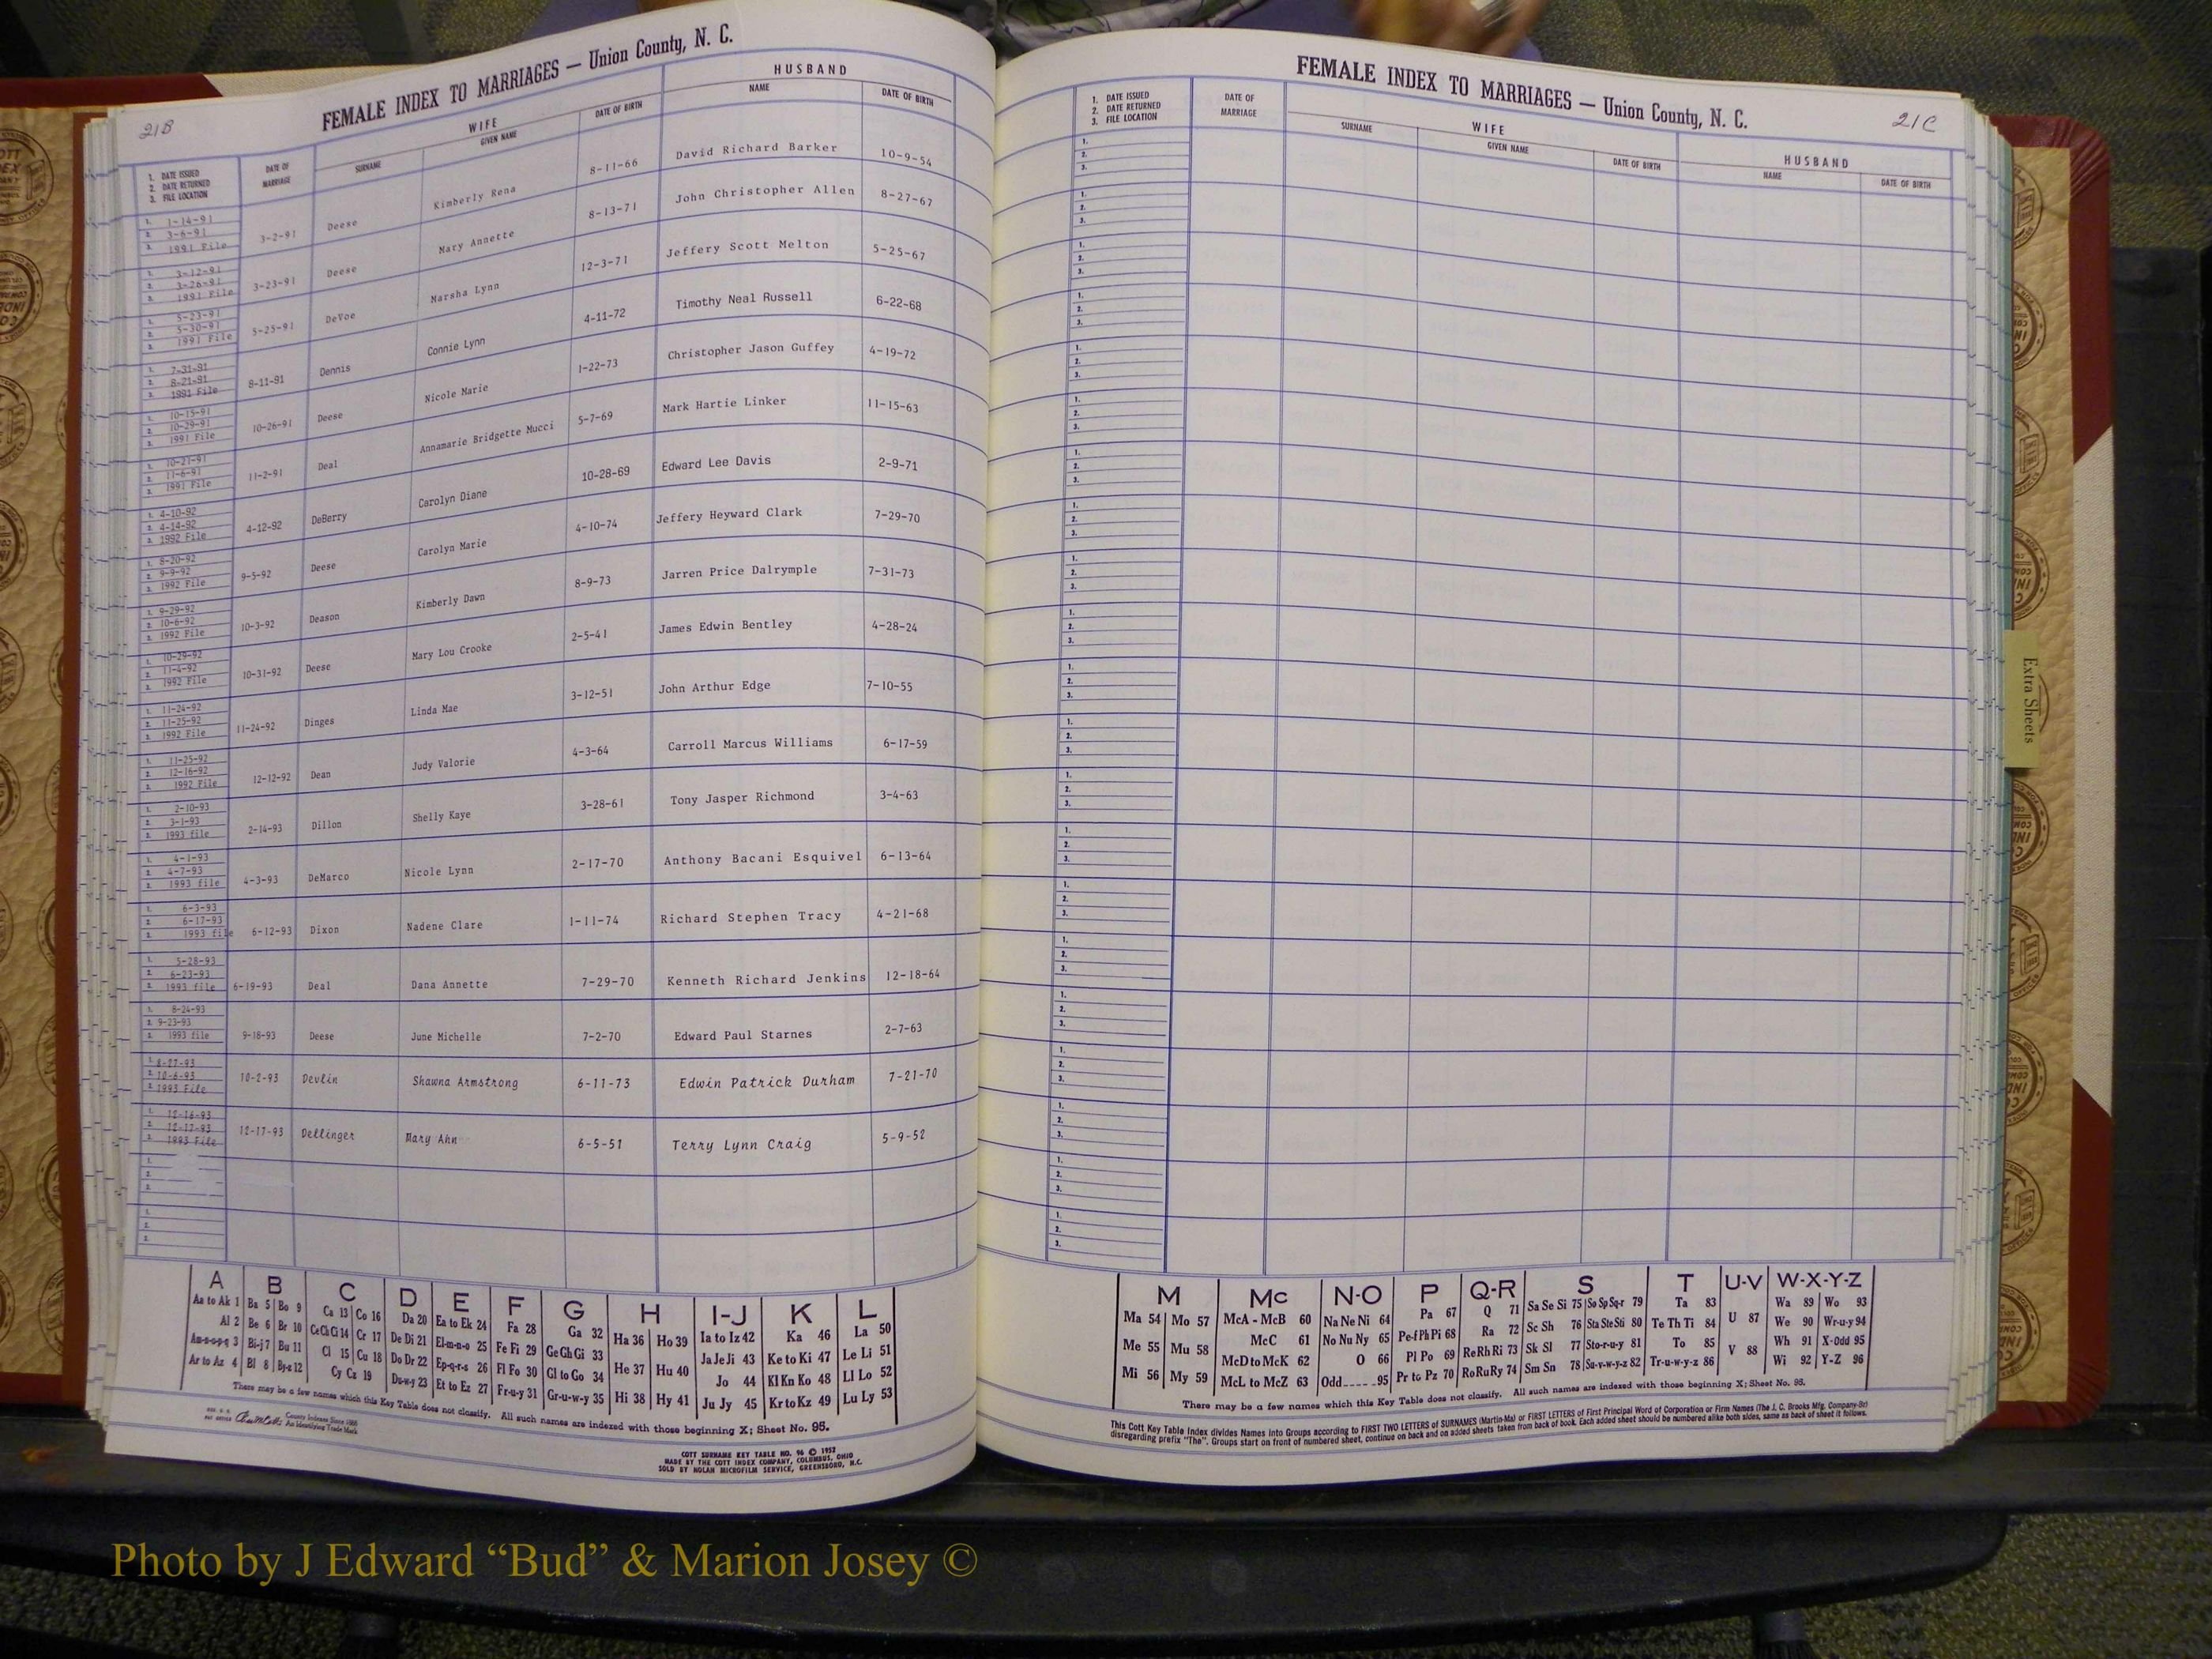 21B
FEMALE INDEX TO MARRIAGES — Union County, N. C.
WIFE HUSBAND
1. DATE ISSUED
2. DATE RETURNED
3. FILE LOCATION
DATE OF MARRIAGE SURNAME GIVEN NAME DATE OF BIRTH NAME DATE OF BIRTH
1. 1-14-91
2. 3-6-91
3. 1991 File
3-2-91 Deese Kimberly Rena 8-11-66 David Richard Barker 10-9-54
1. 3-12-91
2. 3-26-91
3. 1991 File
3-23-91 Deese Mary Annette 8-13-71 John Christopher Allen 8-27-67
1. 5-23-91
2. 5-30-91
3. 1991 File
5-25-91 DeVoe Marsha Lynn 12-3-71 Jeffery Scott Melton 5-25-67
1. 7-31-91
2. 8-21-91
3. 1991 File
8-11-91 Dennis Connie Lynn 4-11-72 Timothy Neal Russell 6-22-68
1. 10-15-91
2. 10-29-91
3. 1991 File
10-26-91 Deese Nicole Marie 1-22-73 Christopher Jason Guffey 4-19-72
1. 10-21-91
2. 11-6-91
3. 1991 File
11-2-91 Deal Annamarie Bridgette Mucci 5-7-69 Mark Hartie Linker 11-15-63
1. 4-10-92
2. 4-14-92
3. 1992 File
4-12-92 DeBerry Carolyn Diane 10-28-69 Edward Lee Davis 2-9-71
1. 8-20-92
2. 9-9-92
3. 1992 File
9-5-92 Deese Carolyn Marie 4-10-74 Jeffery Heyward Clark 7-29-70
1. 9-29-92
2. 10-6-92
3. 1992 File
10-3-92 Deason Kimberly Dawn 8-9-73 Jarren Price Dalrymple 7-31-73
1. 10-29-92
2. 11-4-92
3. 1992 File
10-31-92 Deese Mary Lou Crooke 2-5-41 James Edwin Bentley 4-28-24
1. 11-24-92
2. 11-25-92
3. 1992 File
11-24-92 Dinges Linda Mae 3-12-51 John Arthur Edge 7-10-55
1. 11-25-92
2. 12-16-92
3. 1992 File
12-12-92 Dean Judy Valorie 4-3-64 Carroll Marcus Williams 6-17-59
1. 2-10-93
2. 3-1-93
3. 1993 file
2-14-93 Dillon Shelly Kaye 3-28-61 Tony Jasper Richmond 3-4-63
1. 4-1-93
2. 4-7-93
3. 1993 file
4-3-93 DeMarco Nicole Lynn 2-17-70 Anthony Bacani Esquivel 6-13-64
1. 6-3-93
2. 6-17-93
3. 1993 file
6-12-93 Dixon Nadene Clare 1-11-74 Richard Stephen Tracy 4-21-68
1. 5-28-93
2. 6-23-93
3. 1993 file
6-19-93 Deal Dana Annette 7-29-70 Kenneth Richard Jenkins 12-18-64
1. 8-24-93
2. 9-23-93
3. 1993 file
9-18-93 Deese June Michelle 7-2-70 Edward Paul Starnes 2-7-63
1. 8-27-93
2. 10-6-93
3. 1993 File
10-2-93 Devlin Shawna Armstrong 6-11-73 Edwin Patrick Durham 7-21-70
1. 12-16-93
2. 12-17-93
3. 1993 File
12-17-93 Dellinger Mary Ann 6-5-51 Terry Lynn Craig 5-9-52
1.
2.
3.
1.
2.
3.
A B C D E F G H I-J K L
Aa to Ak 1 Ba 5 Bo 9 Ca 13 Co 16 Da 20 Ea to Ek 24 Fa 28 Ga 32 Ha 36 Ho 39 Ia to Iz 42 Ka 46 La 50
Al 2 Be 6 Br 10 Ce Ch Ci 14 Cr 17 De Di 21 El-m-n-o 25 Fe Fi 29 Ge Gh Gi 33 He 37 Hu 40 Ja Je Ji 43 Ke to Ki 47 Le Li 51
Am-n-o-p-q 3 Bi-j 7 Bu 11 Cl 15 Cu 18 Do Dr 22 Ep-q-r-s 26 Fl Fo 30 Gl to Go 34 Hi 38 Hy 41 Jo 44 Kl Kn Ko 48 Ll Lo 52
Ar to Az 4 Bl 8 By-z 12 Cy Cz 19 Du-w-y 23 Et to Ez 27 Fr-u-y 31 Gr-u-w-y 35 Ju Jy 45 Kr to Kz 49 Lu Ly 53
There may be a few names which this Key Table does not classify. All such names are indexed with those beginning X; Sheet No. 95.
County Indexes Since 1888
An Identifying Trade Mark
COTT SURNAME KEY TABLE NO. 96 © 1952
MADE BY THE COTT INDEX COMPANY, COLUMBUS, OHIO
SOLD BY NOLAN MICROFILM SERVICE, GREENSBORO, N.C.
FEMALE INDEX TO MARRIAGES — Union County, N. C.
21C
1. DATE ISSUED
2. DATE RETURNED
3. FILE LOCATION
DATE OF MARRIAGE WIFE HUSBAND
SURNAME GIVEN NAME DATE OF BIRTH NAME DATE OF BIRTH
Extra Sheets
M Mc N-O P Q-R S T U-V W-X-Y-Z
Ma 54 Mo 57 McA - McB 60 Na Ne Ni 64 Pa 67 Q 71 Sa Se Si 75 So Sp Sq-r 79 Ta 83 U 87 Wa 89 Wo 93
Me 55 Mu 58 McC 61 No Nu Ny 65 Pe-f Ph Pi 68 Ra 72 Sc Sh 76 Sta Ste Sti 80 Te Th Ti 84 V 88 We 90 Wr-u-y 94
Mi 56 My 59 McD to McK 62 O 66 Pl Po 69 Re Rh Ri 73 Sk Sl 77 Sto-r-u-y 81 To 85 Wh 91 X-Odd 95
McL to McZ 63 Odd 95 Pr to Pz 70 Ro Ru Ry 74 Sm Sn 78 Su-v-w-y-z 82 Tr-u-w-y-z 86 Wi 92 Y-Z 96
There may be a few names which this Key Table does not classify. All such names are indexed with those beginning X; Sheet No. 95.
This Cott Key Table Index divides Names into Groups according to FIRST TWO LETTERS of SURNAMES (Martin-Ma) or FIRST LETTERS of First Principal Word of Corporation or Firm Names (The J. C. Brooks Mfg. Company-Br)
disregarding prefix "The". Groups start on front of numbered sheet, continue on back and on added sheets taken from back of book. Each added sheet should be numbered alike both sides, same as back of sheet it follows.
Photo by J Edward “Bud” & Marion Josey ©